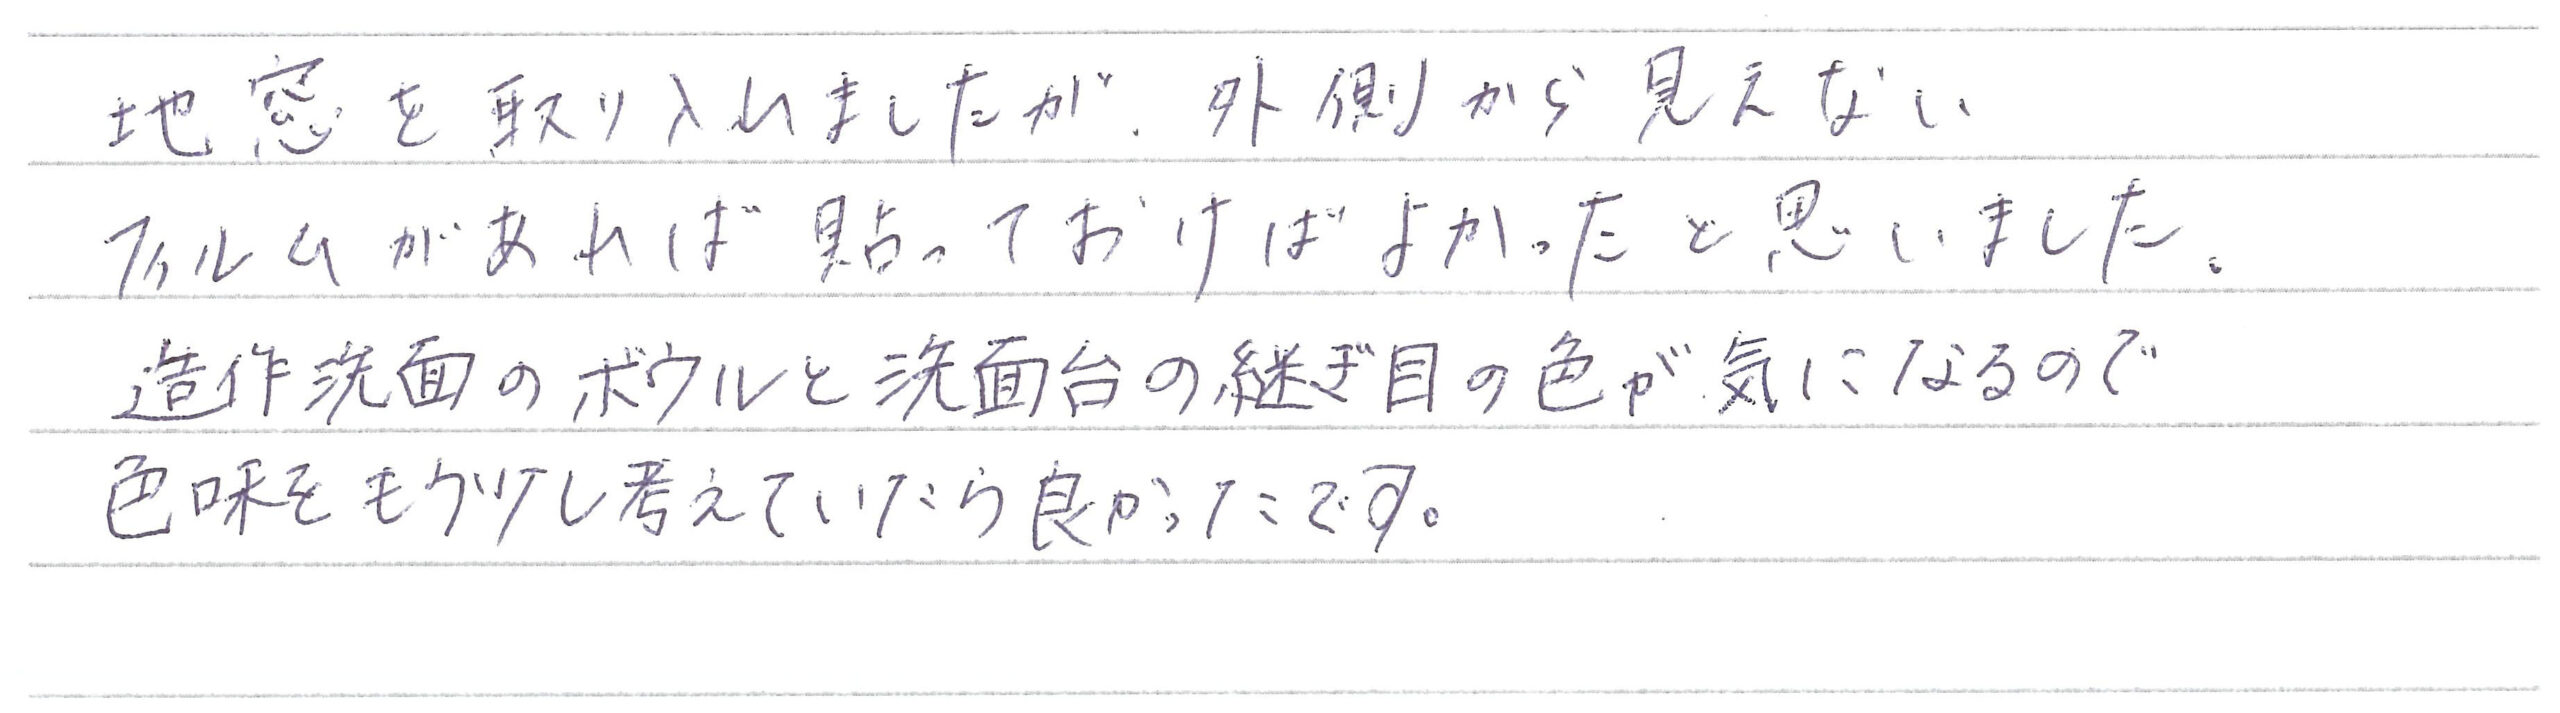 地窓を取り入れましたが、外側から見えない
フィルムがあれば貼っておけばよかったと思いました。
造作洗面のボウルと洗面台の継ぎ目の色が気になるので
色味をもう少し考えていたら良かったです。